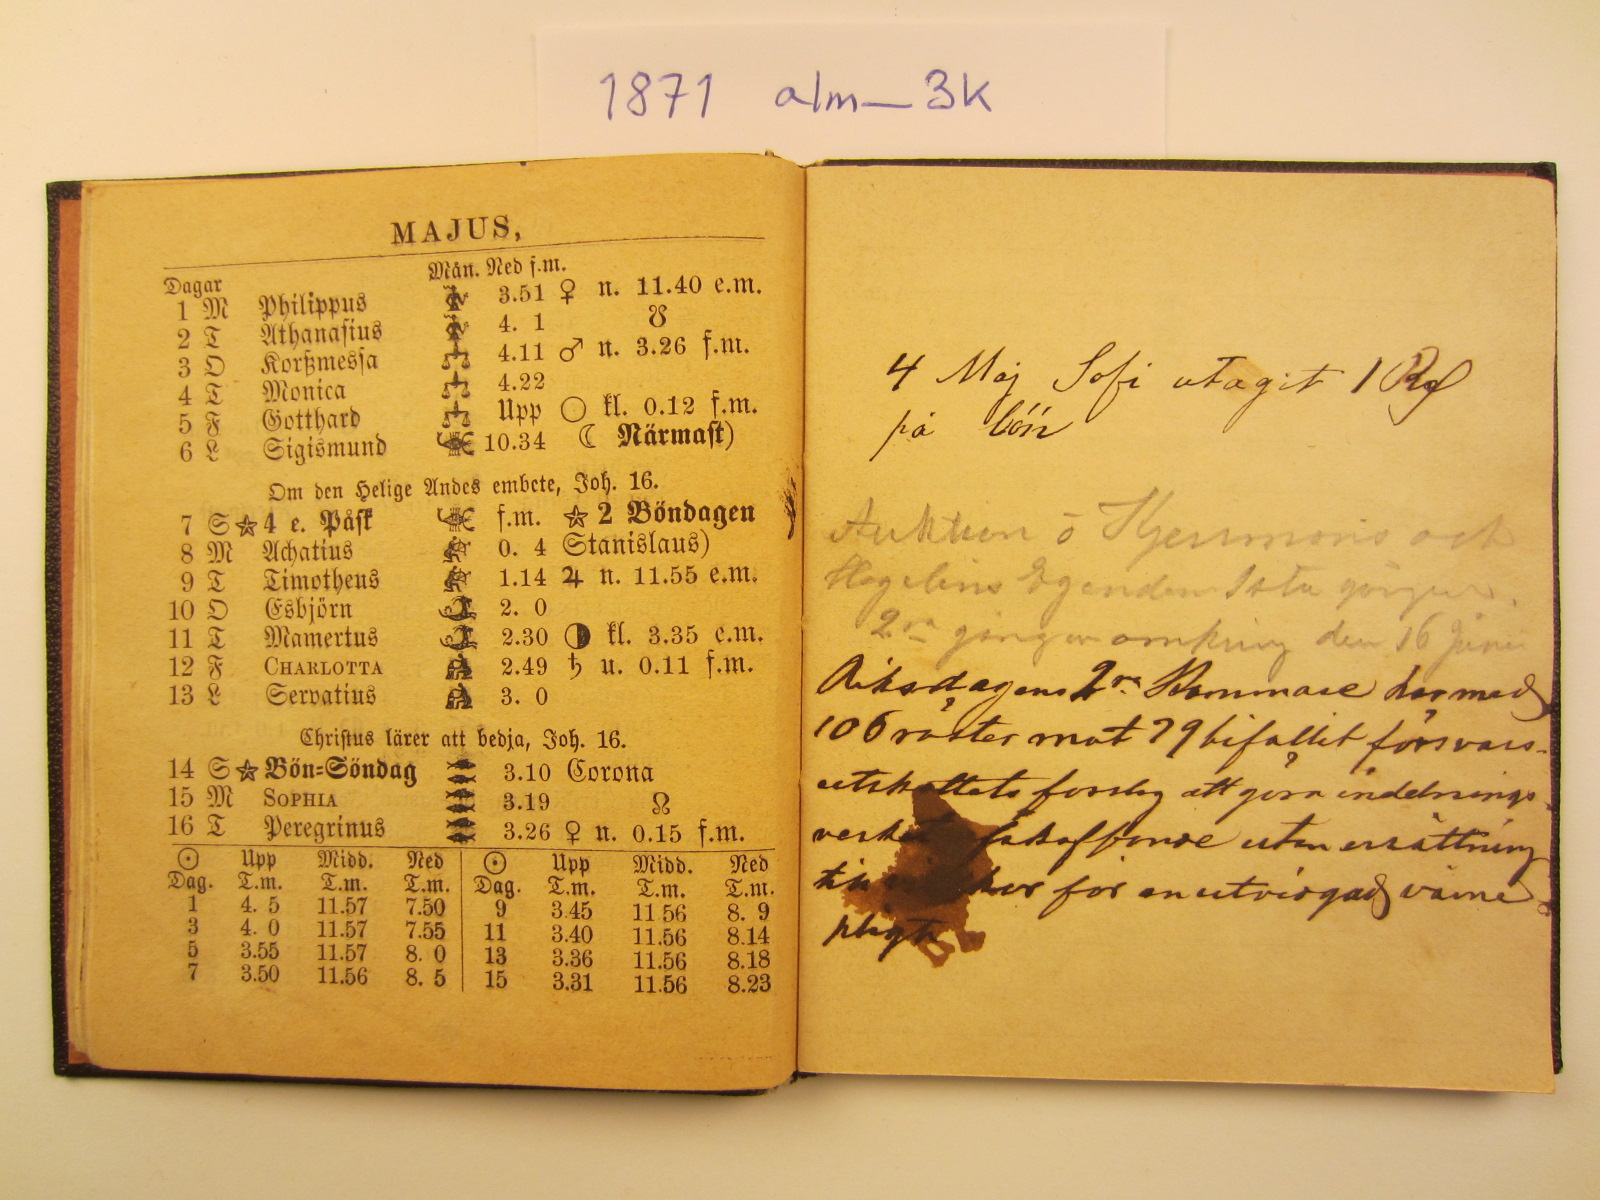 1871 alm_3k
MAJUS,
Dagar Mån. Ned f.m.
1 M Philippus 3.51 ♀ n. 11.40 e.m.
2 T Athanasius 4. 1 ☋
3 O Korßmessa 4.11 ♂ n. 3.26 f.m.
4 T Monica 4.22
5 F Gotthard Upp ○ kl. 0.12 f.m.
6 L Sigismund 10.34 ☾ Närmast)
Om den Helige Andes embete, Joh. 16.
7 S ☆ 4 e. Påsk f.m. ☆ 2 Böndagen
8 M Achatius 0. 4 Stanislaus)
9 T Timotheus 1.14 ♃ n. 11.55 e.m.
10 O Esbjörn 2. 0
11 T Mamertus 2.30 ◑ kl. 3.35 e.m.
12 F CHARLOTTA 2.49 ♄ u. 0.11 f.m.
13 L Servatius 3. 0
Christus lärer att bedja, Joh. 16.
14 S ☆ Bön=Söndag 3.10 Corona
15 M SOPHIA 3.19 ☊
16 T Peregrinus 3.26 ♀ n. 0.15 f.m.
☉ Upp Midd. Ned ☉ Upp Midd. Ned
Dag. T.m. T.m. T.m. Dag. T.m. T.m. T.m.
1 4. 5 11.57 7.50 9 3.45 11.56 8. 9
3 4. 0 11.57 7.55 11 3.40 11.56 8.14
5 3.55 11.57 8. 0 13 3.36 11.56 8.18
7 3.50 11.56 8. 5 15 3.31 11.56 8.23
4 Maj Sofi utagit 10
på lön
Auktion å och
Egendom 1sta
2ra gången omkring den 16 Juni
Riksdagens 2ra Kammare har med
106 röster mot 79 bifallit försvars-
utskottets förslag att göra indelnings-
verket utan ersättning
för en utvidgad värne
pligt